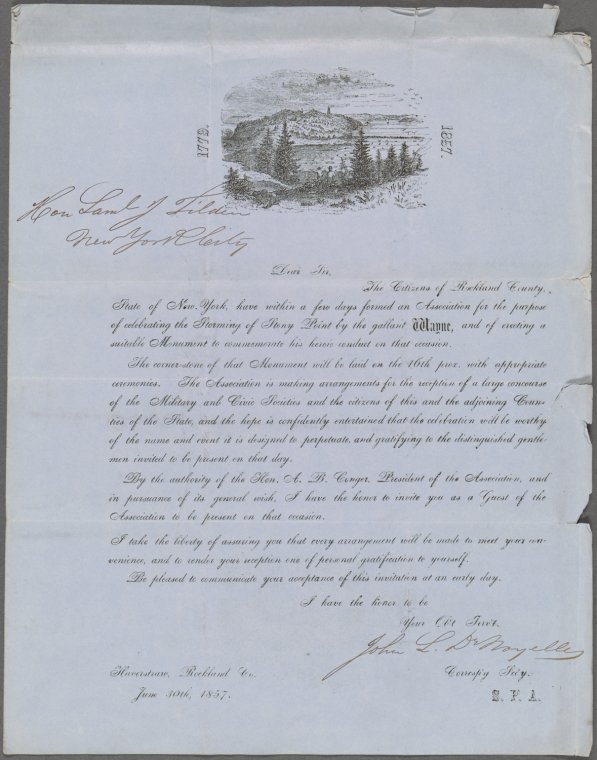 1779.
1857.
Hon Saml J Tilden
New York City
Dear Sir,
The Citizens of Rockland County,
State of New-York, have within a few days formed an Association for the purpose
of celebrating the Storming of Stony Point by the gallant Wayne, and of erecting a
suitable Monument to commemorate his heroic conduct on that occasion.
The corner-stone of that Monument will be laid on the 16th prox. with appropriate
ceremonies. The Association is making arrangements for the reception of a large concourse
of the Military anb Civic Societies and the citizens of this and the adjoining Coun-
ties of the State, and the hope is confidently entertained that the celebration will be worthy
of the name and event it is designed to perpetuate, and gratifying to the distinguished gentle-
men invited to be present on that day.
By the authority of the Hon. A. B. Conger, President of the Association, and
in pursuance of its general wish, I have the honor to invite you as a Guest of the
Association to be present on that occasion.
I take the liberty of assuring you that every arrangement will be made to meet your con-
venience, and to render your reception one of personal gratification to yourself.
Be pleased to communicate your acceptance of this invitation at an early day.
I have the honor to be
Your Obt Servt.
John L. De Noyelles
Corresp'g Sec'y.
Haverstraw, Rockland Co.
June 30th, 1857.
S. P. A.